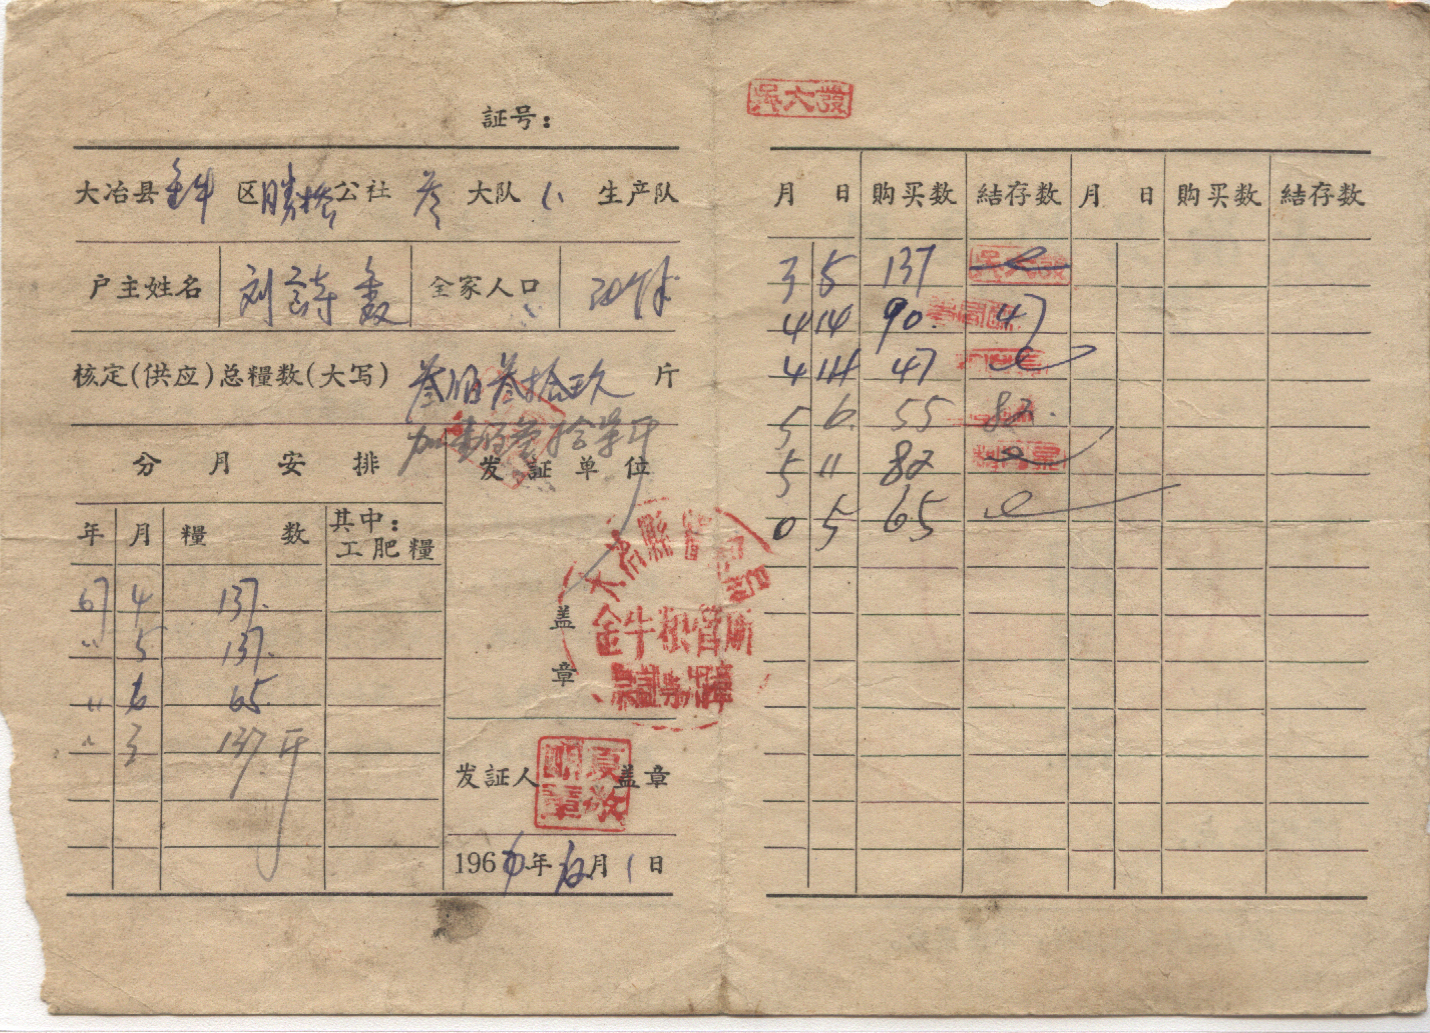 証号:
大冶县金牛区勝桥公社叁大队八生产队
户主姓名 刘 全家人口
核定(供应)总糧数(大写) 叁佰叁拾玖 斤
加壹佰叁拾柒斤
分月安排 发証单位
年 月 糧数 其中:工肥糧
67 4 137.
〃 5 137.
〃 6 65.
〃 3 137斤
盖章
大冶縣糧食局
金牛粮管所
发証人 盖章
夏敬明章
196 年 月1日
吳大發
月 日 购买数 結存数 月 日 购买数 結存数
3 5 137
吳大發
4 14 90. 47
4 14 47
5 6. 55 82.
5 11 82
0 5 65